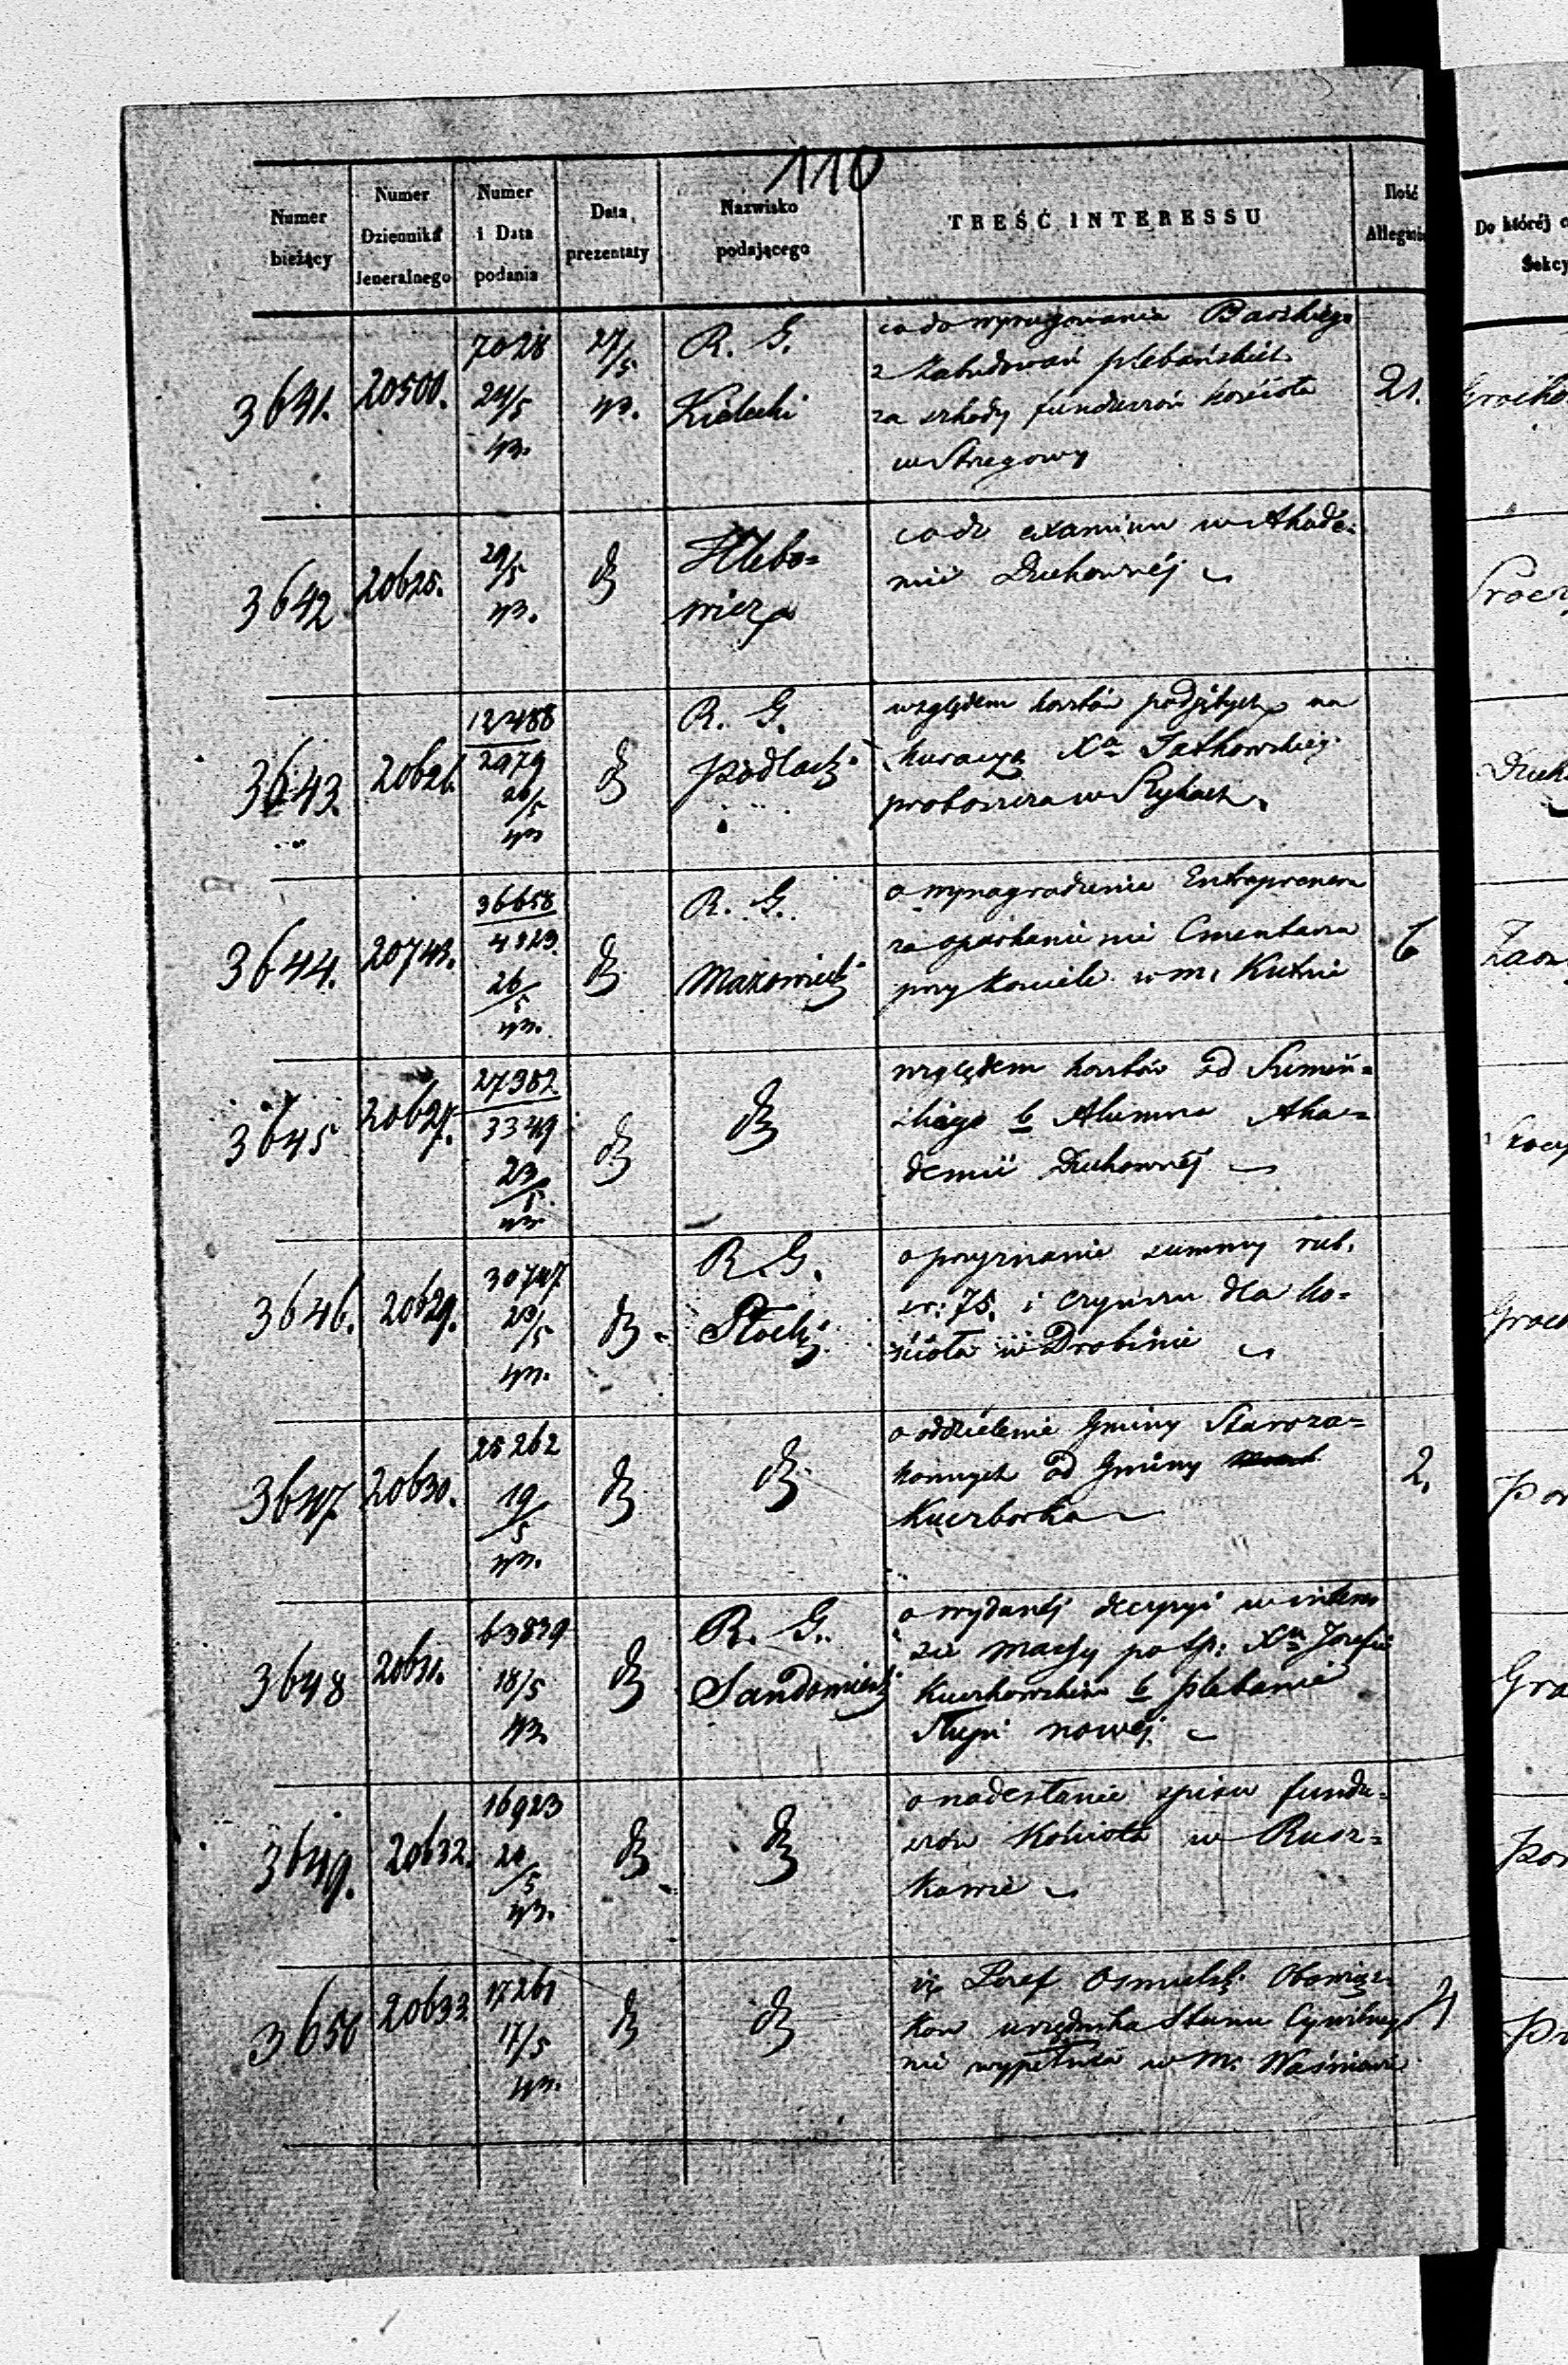 110
Numer bieżący
Numer Dziennika Jeneralnego
Numer i Data podania
Data prezentaty
Nazwisko podającego
TREŚĆ INTERESSU
Ilość
Do któréj
3641. 20500. 7028 24/5 43. 27/5 43. R. G. Kielecki
co do wyrugowania
z Zabudowań plebańskich
za szkody funduszów kościoła
w Strzegowy
21.
3642 20625. 29/5 43. Hlebo=
wicz
co do examinu w Akade=
mii Duchownéj
3643. 20626. 12488 2979 26/5 43 R. G. Podlack:
względem kosztów podjętych na
kuracyą Xa
proboszcza w Rykach.
3644. 20743. 36658 4823. 26/5 43. R. G. Mazowieck:
o wynagrodzenie Entreprenera
za oparkanienie Cmentarza
przy kościele w m. Kutnie
6
3645 20627. 27382 3349 23/5 43
względem kosztów od
skiego b Alumna Aka=
demii Duchownéj
3646. 20629. 30747 23/5 43. R. G. Płocki
o przyznanie summy rub.
sr: 75. i czynszu dla ko=
ścioła w Drobinie
3647. 20630. 25262 19/5 43.
o oddzielenie Gminy Staroza=
konnych od Gminy
Kuczborka
2.
3648 20631. 63839 18/5 43. R. G. Sandomiersk:
o wydanéj decyzyi w interes
sie massy po śp: Xu Józefie
b plebanie
Słupi nowéj
3649. 20632. 16923 20/5 43.
o nadesłanie spisu fundu=
szów Kościoła w Rusz=
kowie
3650 20633 17261 17/5 43.
iż Józef Osmulsk: Obowiąz=
ków urzędnika Stanu Cywilnego
nie wypełnia w m. Waśniowie
4